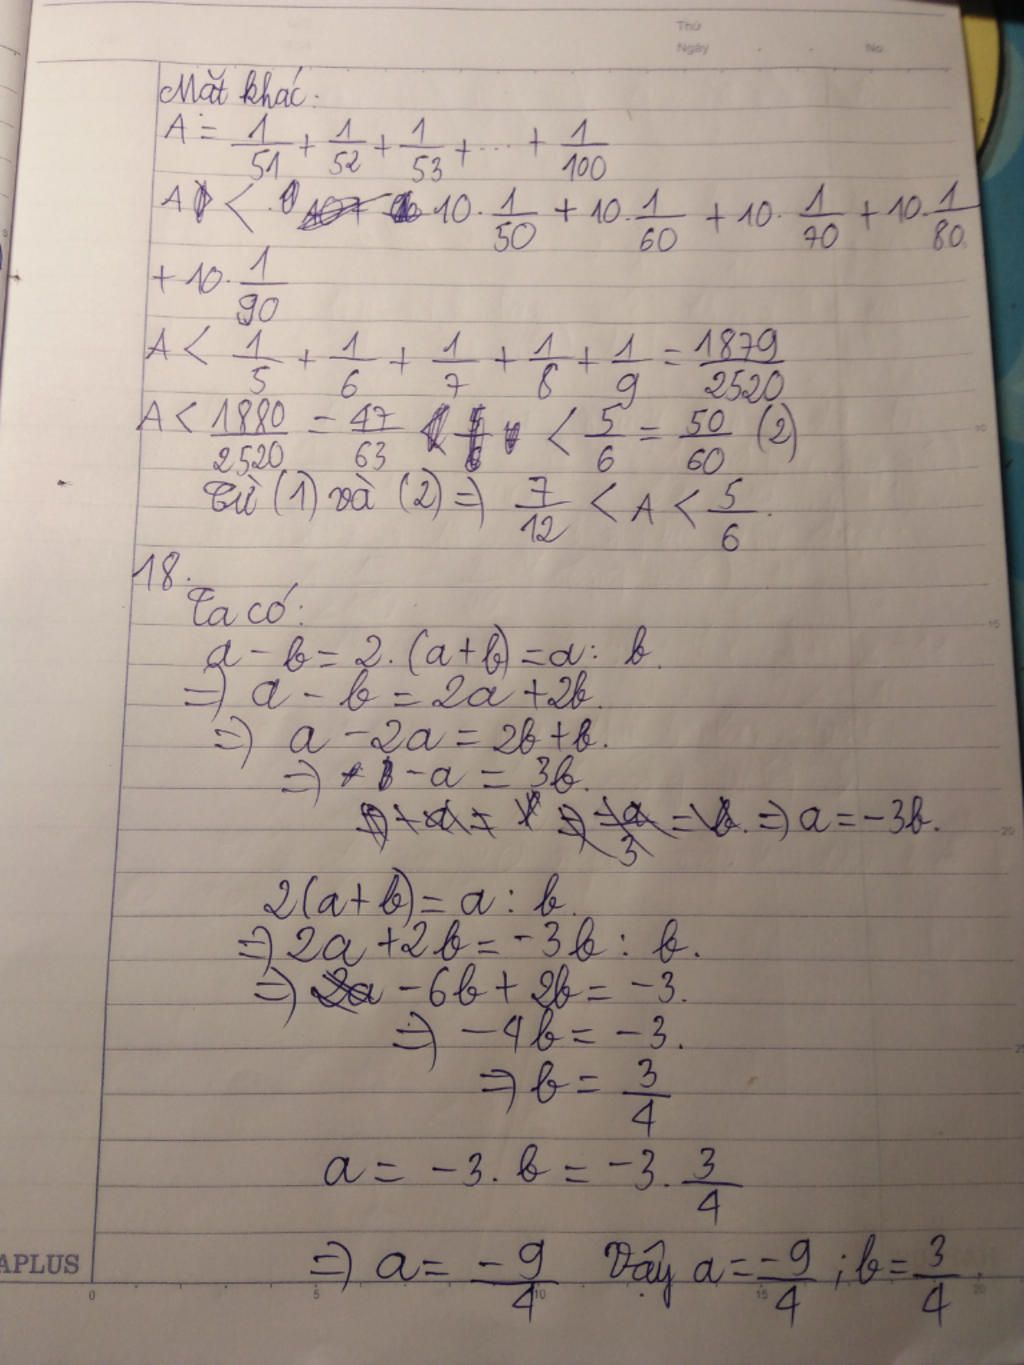 Thứ
Ngày . . No
Mặt khác:
A = 1/51 + 1/52 + 1/53 + ... + 1/100
A < 10 . 1/50 + 10 . 1/60 + 10 . 1/70 + 10 . 1/80
+ 10 . 1/90
A < 1/5 + 1/6 + 1/7 + 1/8 + 1/9 = 1879/2520
A < 1880/2520 = 47/63 < 5/6 = 50/60 (2)
Từ (1) và (2) => 7/12 < A < 5/6.
18.
Ta có:
a - b = 2. (a+b) = a : b.
=) a - b = 2a + 2b.
=) a - 2a = 2b + b.
=) -a = 3b.
=) a = -3b.
2(a+b) = a : b.
=) 2a + 2b = -3b : b.
=) -6b + 2b = -3.
=) -4b = -3.
=) b = 3/4
a = -3. b = -3. 3/4
=) a = -9/4 Vậy a = -9/4 ; b = 3/4
APLUS
0 5 10 15 20